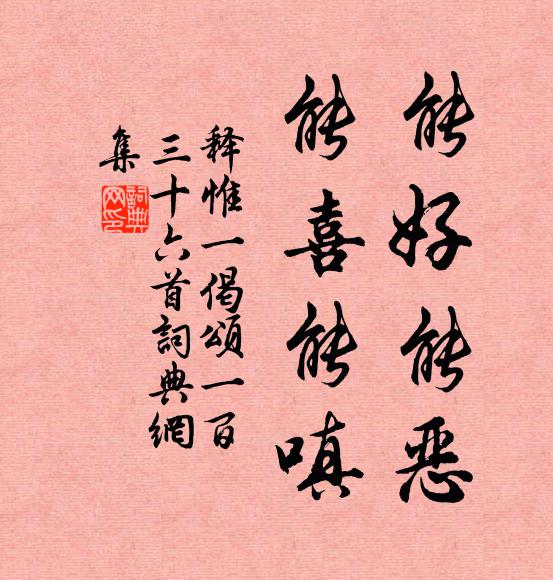 能好能恶
能喜能嗔
释惟一偈頌一百
三十六首詞典網
集
詞典
网印